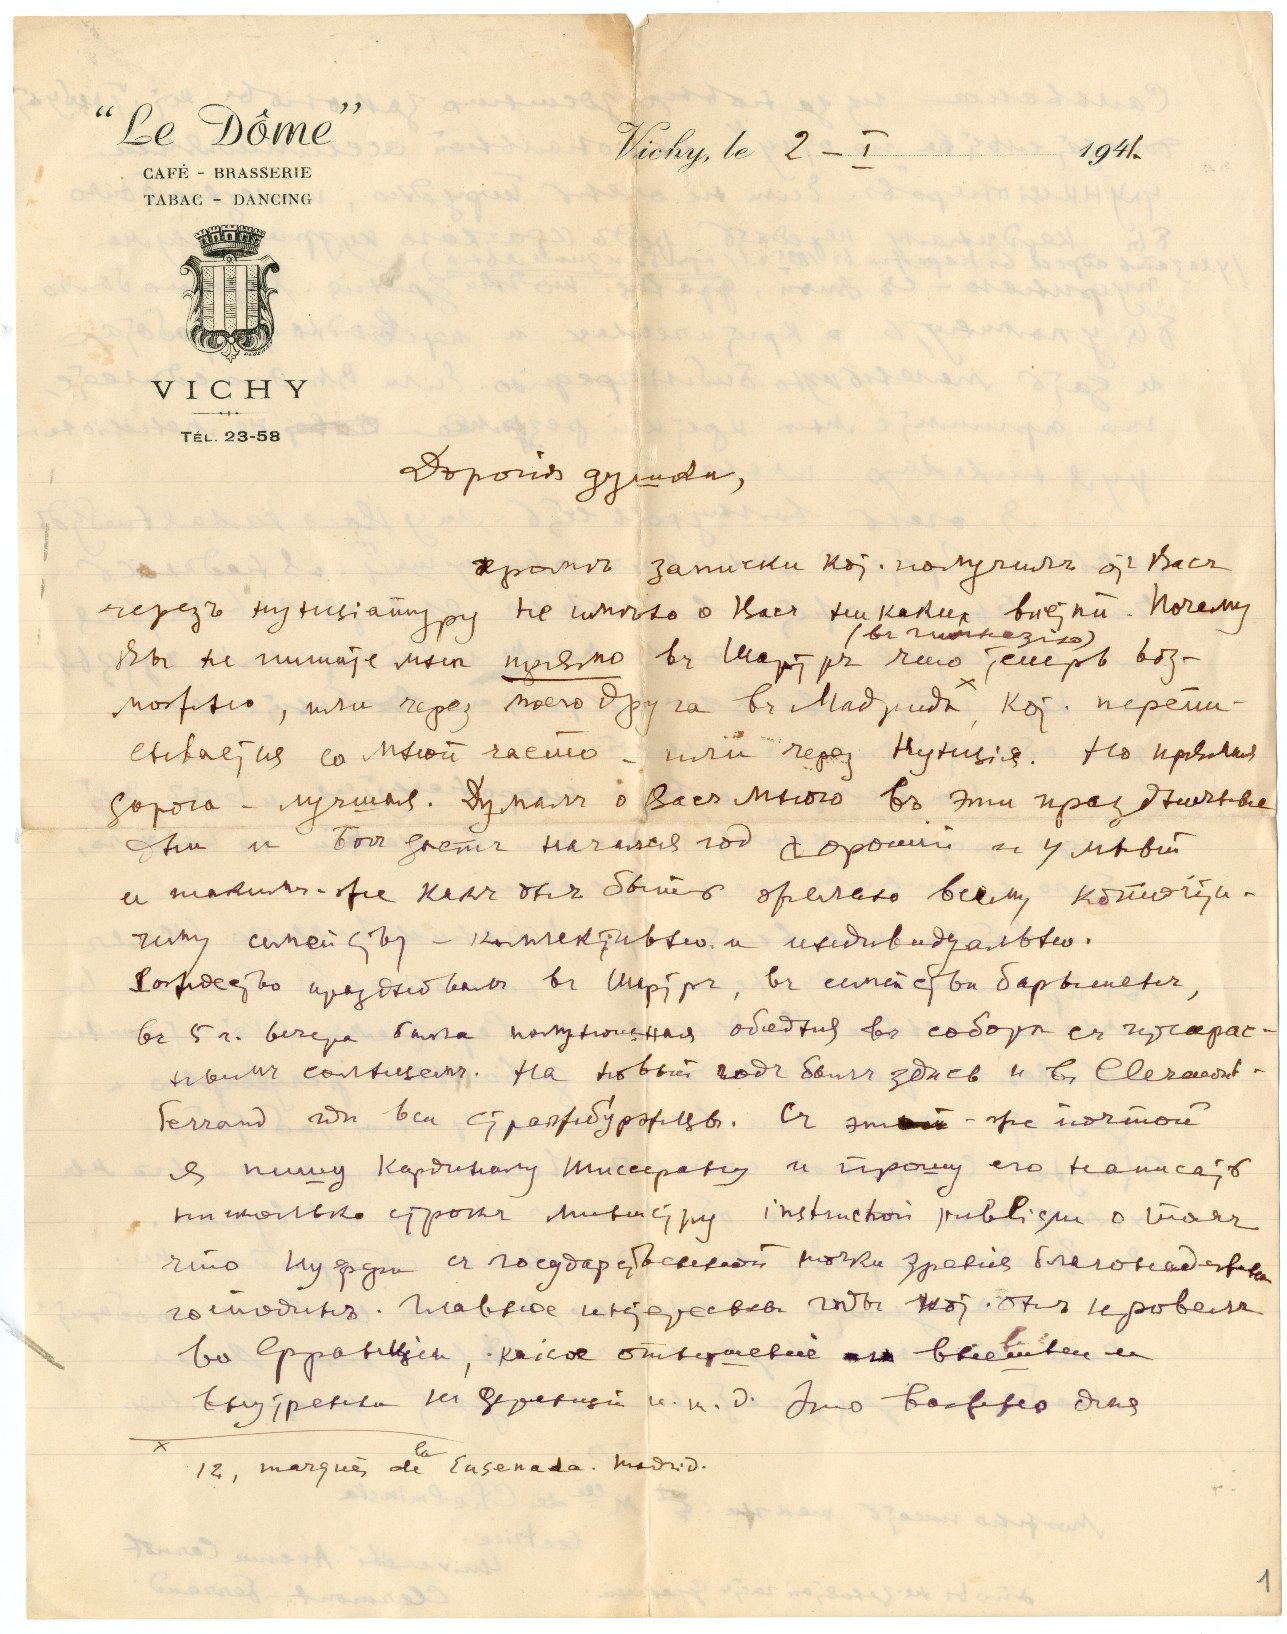 “Le Dôme”
CAFÉ - BRASSERIE
TABAC - DANCING
VICHY
TÉL. 23-58
Vichy, le 2 – I 1941.
Дорогія душки,
кромѣ записки кот. получилъ от Васъ
черезъ нунціатуру не имѣю о Васъ никаких вѣстй. Почему
Вы не пишите мнѣ прямо въ Шартръ (въ гимназію) что теперь воз-
можно, или через моего друга въ Мадридѣ x, кот. перепи-
сывается со мной часто – или через Нунція. Но прямая
дорога – лучшая. Думалъ о Васъ много въ эти праздничные
дни и Богъ дастъ начался год хорошій и умный
и такимъ-же какъ онъ быть желаю всему
чему семейству – коллективно и индивидуально.
Рождество праздновалъ въ Шартръ, въ семействѣ
въ 5 ч. вечера была полуночная обѣдня въ соборѣ съ прекрас-
нымъ солнцемъ. На новый годъ былъ здѣсь и въ Clermont-
Ferrand гдѣ всѣ стразбуржцы. Съ этой-же почтой
я пишу Кардиналу Тиссерану и прошу его написать
нѣсколько строкъ министру instruction publique о томъ
что съ государственной точки зрѣнія благонадежный
господинъ. Главное интересны годы кот. онъ провелъ
во Франціи, какое отношеніе внѣшнѣ и
внутренне къ Франціи и т. д. Это важно для
x 12, marqués de la Ensenada. Madrid.
1